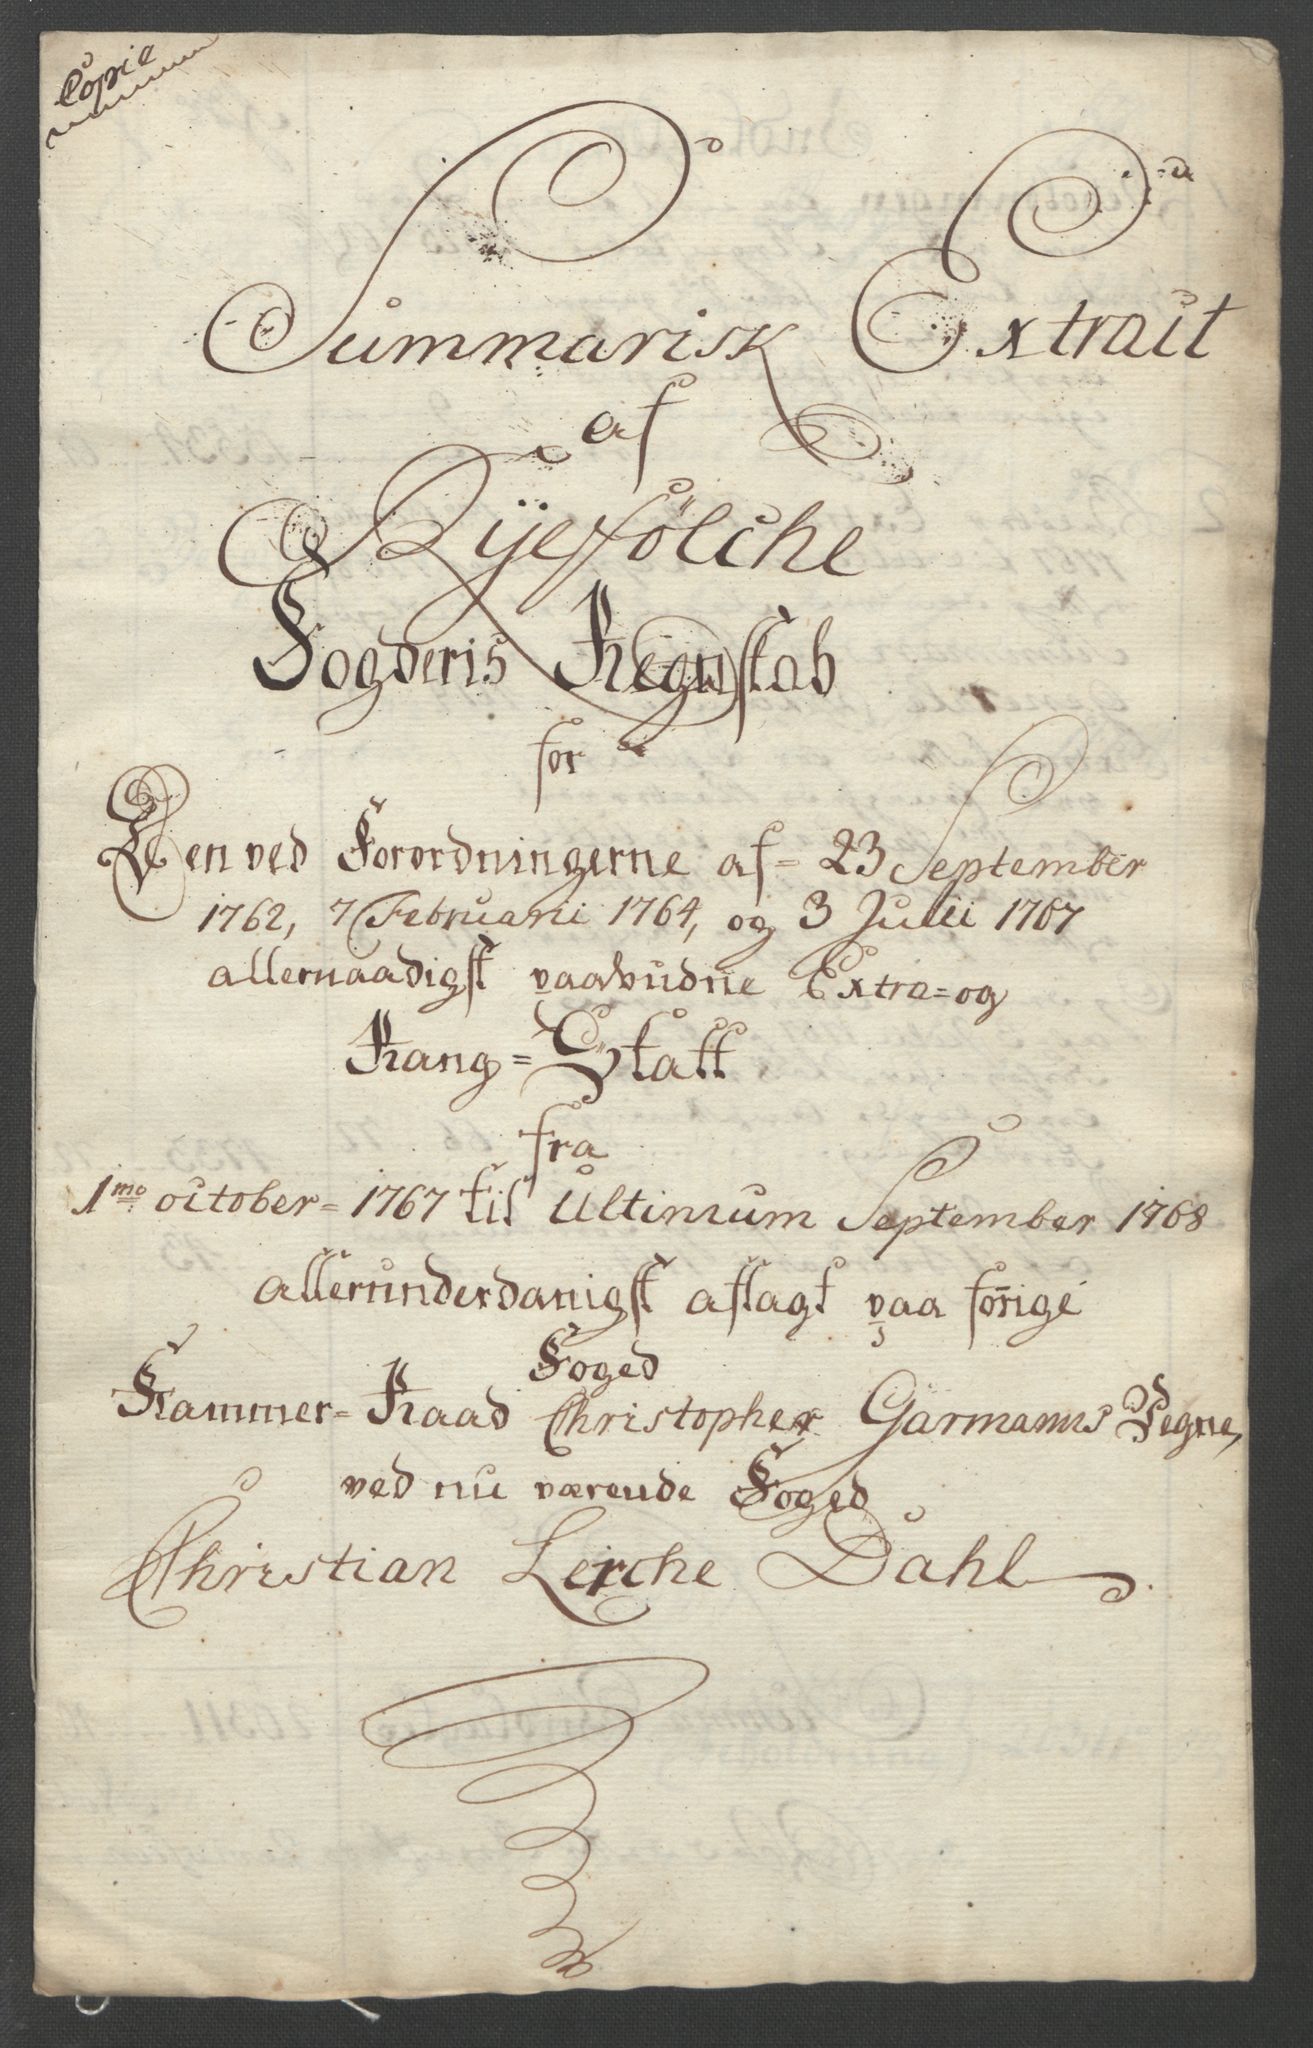 Copie
Summarisk Extract
af
Ryefÿlche
Fogderis Regnskab
for
Den ved Forordningerne af 23 September
1762, 7 Februarii 1764, og 3 Julii 1767
allernaadigst paabudne Extra= og
Rang=Skatt
fra
1mo october= 1767 til Ultimum September 1768
allerunderdanigst aflagt paa forige
Foged
Kammer=Raad Christopher Garmanns Vegne,
ved nu værende Foged
Christian Lerche Dahl